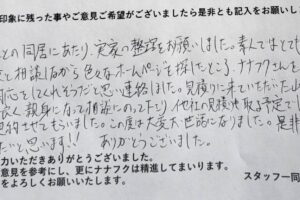 印象に残った事やご意見ご希望がございましたら是非とも記入をお願いし
との同居にあたり、実家の整理をお願いしました。素人ではとても
と相談しながら色々なホームページを探したところ、ナナフクさんを
対応をしてくれそうだと思い連絡しました。見積りに来ていただいた山
良く、親身になって相談にのって下さり、他社の見積比較する予定で
約させてもらいました。この度は大変お世話になりました。是非
だと思います!!ありがとうございました。
力いただきありがとうございました。
意見を参考にし、更にナナフクは精進してまいります。
をよろしくお願いいたします。
スタッフ一同